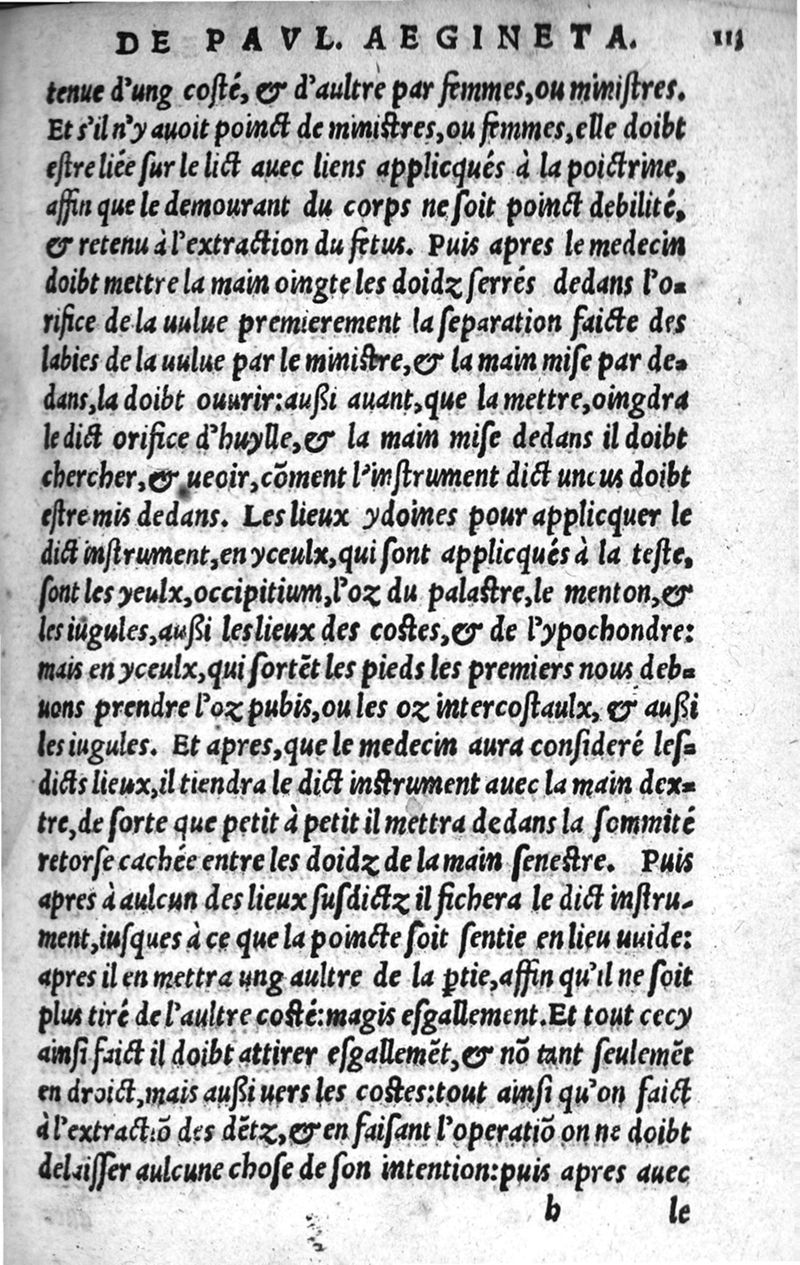 DE PAVL. AEGINETA. 113
tenue d'ung costé, & d'aultre par femmes, ou ministres.
Et s'il n'y auoit poinct de ministres, ou femmes, elle doibt
estre liée sur le lict auec liens applicqués à la poictrine,
affin que le demourant du corps ne soit poinct debilité,
& retenu à l'extraction du fetus. Puis apres le medecin
doibt mettre la main oingte les doidz serrés dedans l'o-
rifice de la uulue premierement la separation faicte des
labies de la uulue par le ministre, & la main mise par de-
dans, la doibt ouurir: außi auant, que la mettre, oingdra
le dict orifice d'huylle, & la main mise dedans il doibt
chercher, & ueoir, cōment l'instrument dict uncus doibt
estre mis dedans. Les lieux ydoines pour applicquer le
dict instrument, en yceulx, qui sont applicqués à la teste,
sont les yeulx, occipitium, l'oz du palastre, le menton, &
les iugules, außi les lieux des costes, & de l'ypochondre:
mais en yceulx, qui sortēt les pieds les premiers nous deb-
uons prendre l'oz pubis, ou les oz intercostaulx, & außi
les iugules. Et apres, que le medecin aura consideré les-
dicts lieux, il tiendra le dict instrument auec la main dex-
tre, de sorte que petit à petit il mettra dedans la sommité
retorse cachée entre les doidz de la main senestre. Puis
apres à aulcun des lieux susdictz il fichera le dict instru-
ment, iusques à ce que la poincte soit sentie en lieu uuide:
apres il en mettra ung aultre de la ꝑtie, affin qu'il ne soit
plus tiré de l'aultre costé: magis esgallement. Et tout cecy
ainsi faict il doibt attirer esgallemēt, & nō tant seulemēt
en droict, mais außi uers les costes: tout ainsi qu'on faict
à l'extractiō des dētz, & en faisant l'operatiō on ne doibt
delaisser aulcune chose de son intention: puis apres auec
b le